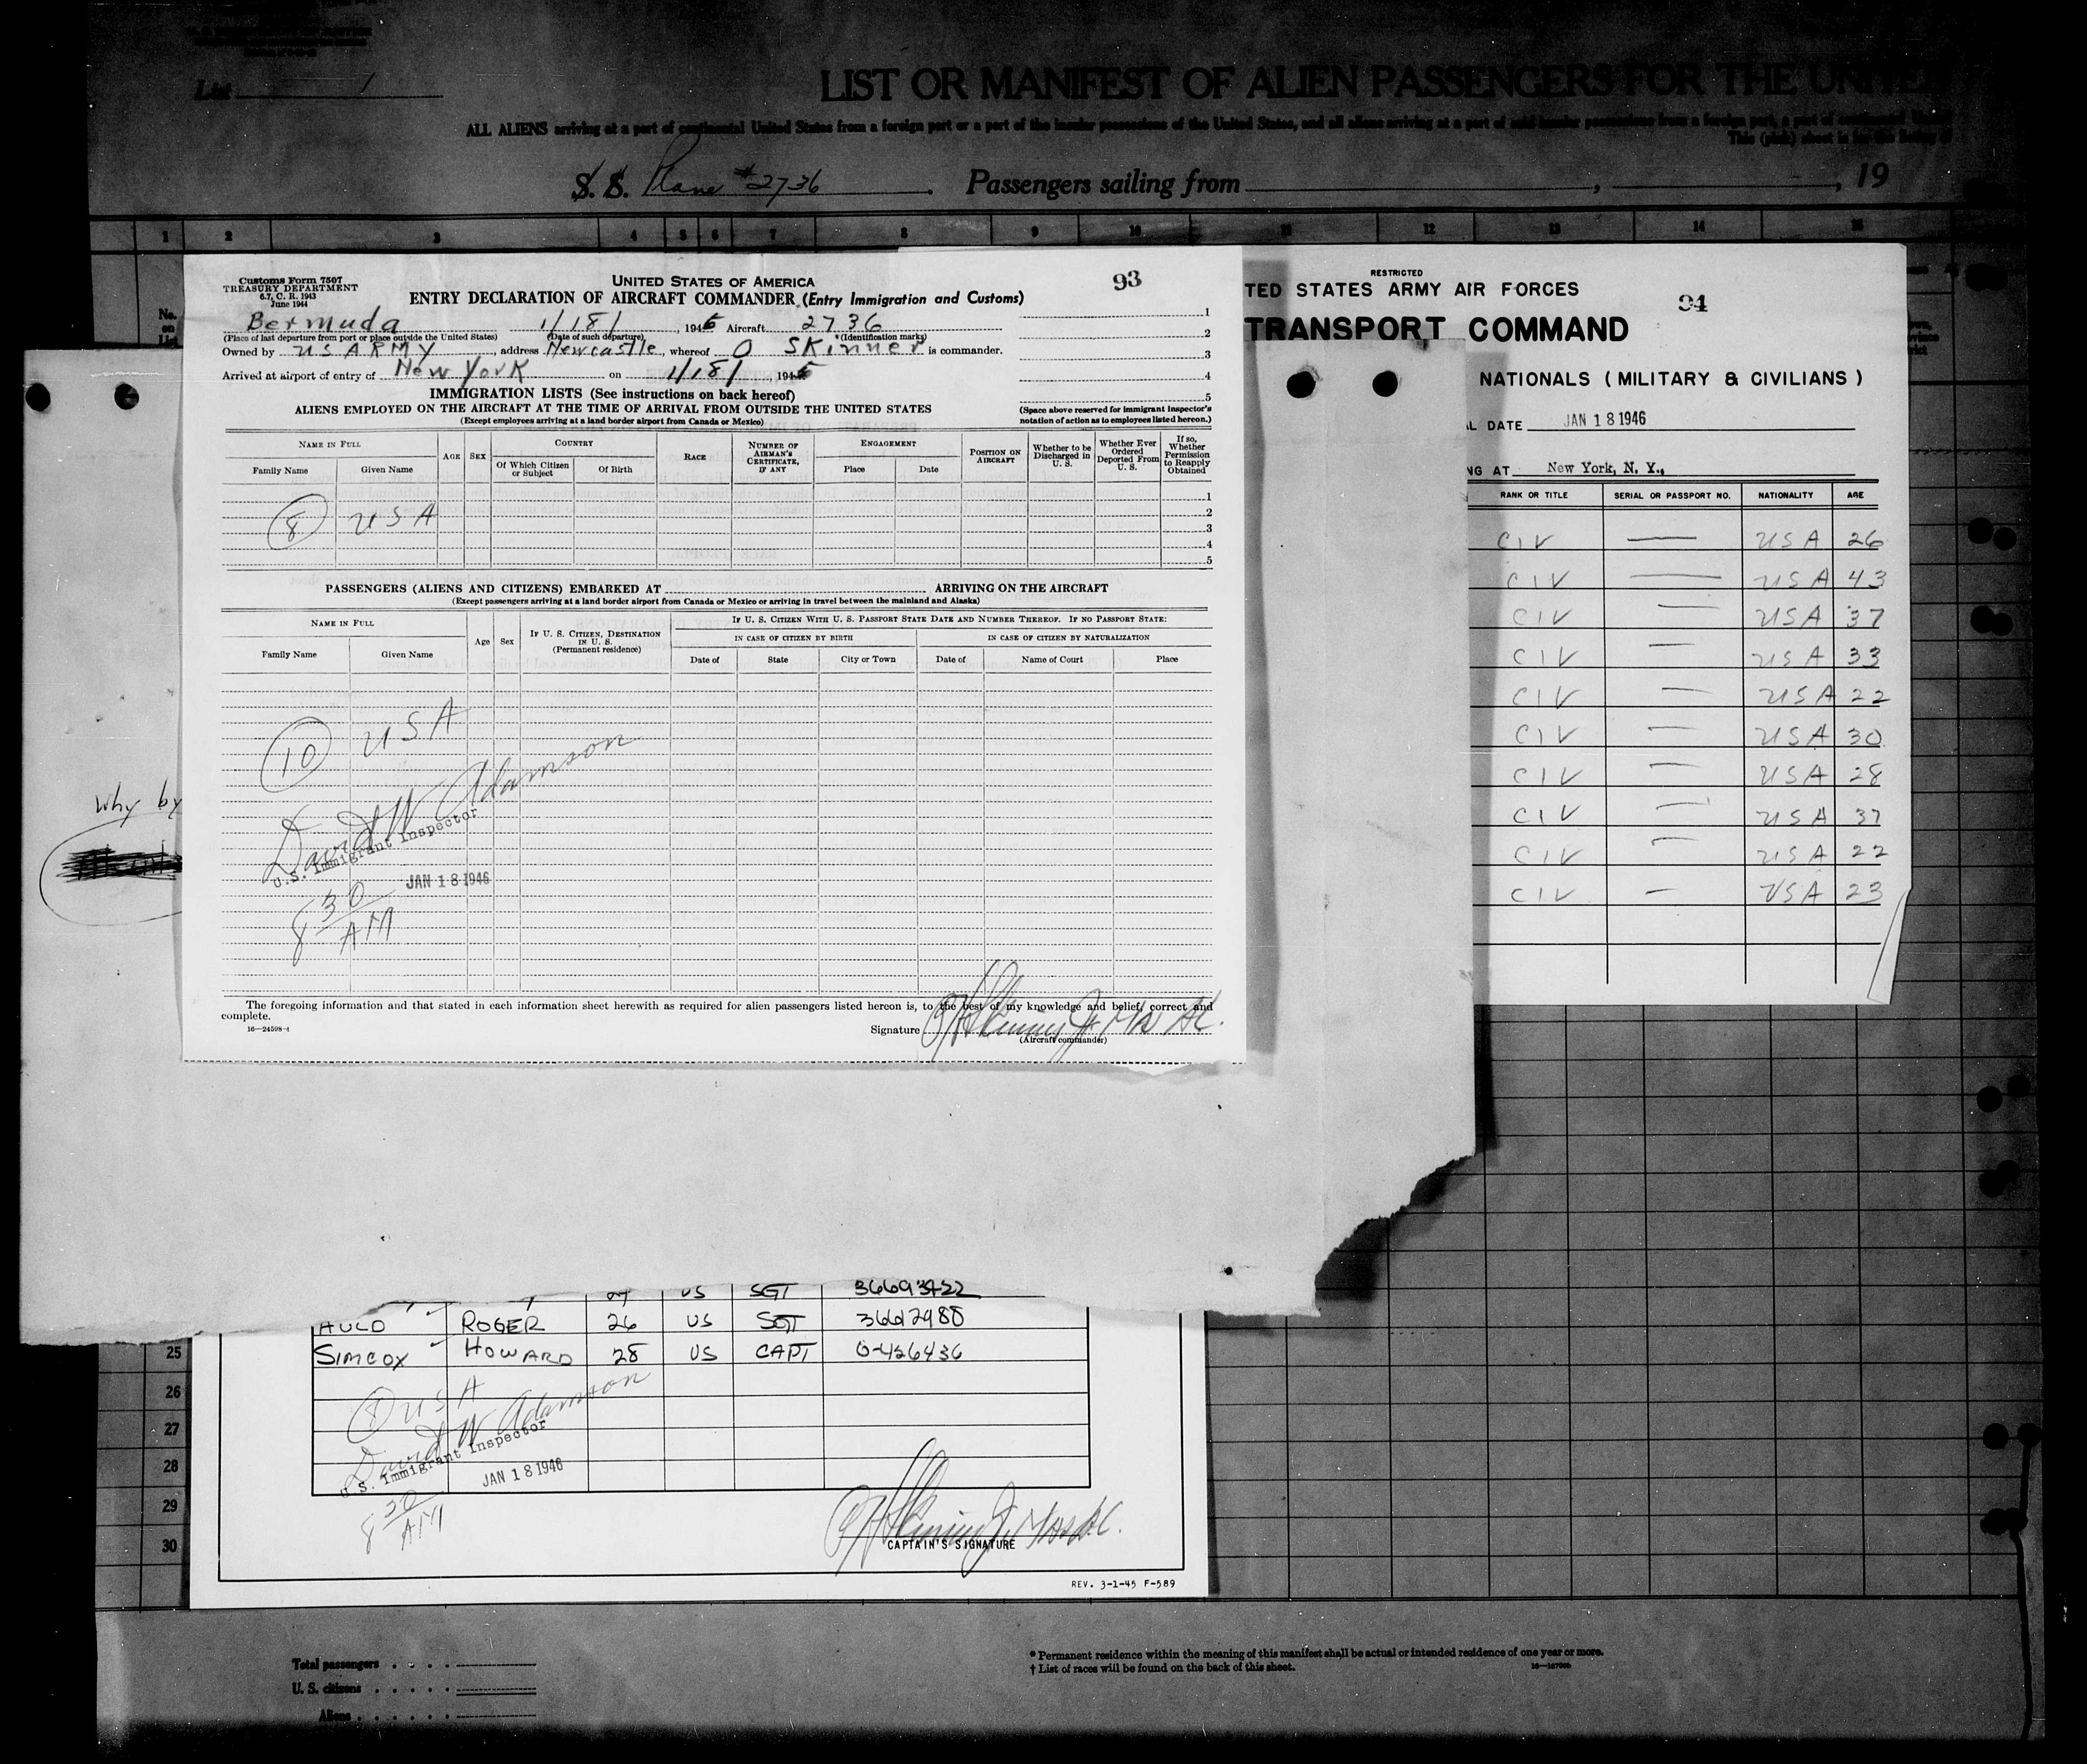 List 1
LIST OR MANIFEST OF ALIEN PASSENGERS FOR THE UNITED
ALL ALIENS arriving at a port of continental United States from a foreign port or a port of the insular possessions of the United States, and all aliens arriving at a port of said insular possessions from a foreign port, a port of continental
This (pink) sheet is for the listing of
S. S. Plane #2736 . Passengers sailing from , , 19
1 2 3 4 5 6 7 8 9 10 11 12 13 14 15
No. on List
Customs Form 7507
TREASURY DEPARTMENT
6.7, C. R. 1943
June 1944
UNITED STATES OF AMERICA
93
ENTRY DECLARATION OF AIRCRAFT COMMANDER (Entry Immigration and Customs)
Bermuda 1/18/, 1946 Aircraft 2736
(Place of last departure from port or place outside the United States) (Date of such departure) (Identification marks)
Owned by US ARMY, address Newcastle, whereof O SKinner is commander.
Arrived at airport of entry of New York on 1/18/, 1946
1
2
3
4
5
IMMIGRATION LISTS (See instructions on back hereof)
ALIENS EMPLOYED ON THE AIRCRAFT AT THE TIME OF ARRIVAL FROM OUTSIDE THE UNITED STATES
(Except employees arriving at a land border airport from Canada or Mexico)
(Space above reserved for immigrant inspector's notation of action as to employees listed hereon.)
NAME IN FULL
Family Name Given Name
AGE SEX
COUNTRY
Of Which Citizen or Subject Of Birth
RACE
NUMBER OF AIRMAN'S CERTIFICATE, IF ANY
ENGAGEMENT
Place Date
POSITION ON AIRCRAFT
Whether to be Discharged in U. S.
Whether Ever Ordered Deported From U. S.
If so, Whether Permission to Reapply Obtained
1
2
8 USA
3
4
5
PASSENGERS (ALIENS AND CITIZENS) EMBARKED AT ARRIVING ON THE AIRCRAFT
(Except passengers arriving at a land border airport from Canada or Mexico or arriving in travel between the mainland and Alaska)
NAME IN FULL
Family Name Given Name
Age Sex
IF U. S. CITIZEN, DESTINATION IN U. S.
(Permanent residence)
IF U. S. CITIZEN WITH U. S. PASSPORT STATE DATE AND NUMBER THEREOF. IF NO PASSPORT STATE:
IN CASE OF CITIZEN BY BIRTH IN CASE OF CITIZEN BY NATURALIZATION
Date of State City or Town Date of Name of Court Place
10 USA
David W Adamson
U.S. Immigrant Inspector
JAN 18 1946
8 30 AM
The foregoing information and that stated in each information sheet herewith as required for alien passengers listed hereon is, to the best of my knowledge and belief, correct and complete.
16—24598-1
Signature
(Aircraft commander)
RESTRICTED
TED STATES ARMY AIR FORCES
94
TRANSPORT COMMAND
NATIONALS (MILITARY & CIVILIANS)
L DATE JAN 18 1946
NG AT New York, N. Y.,
RANK OR TITLE SERIAL OR PASSPORT NO. NATIONALITY AGE
CIV — USA 26
CIV — USA 43
CIV — USA 37
CIV — USA 33
CIV — USA 22
CIV — USA 30
CIV — USA 28
CIV — USA 37
CIV — USA 22
CIV — USA 23
why by
US SGT
AULD ROGER 26 US SGT
SIMCOX HOWARD 28 US CAPT O-426436
USA
David W Adamson
U.S. Immigrant Inspector
JAN 18 1946
8 30 AM
CAPTAIN'S SIGNATURE
REV. 3-1-45 F-589
25
26
27
28
29
30
Total passengers
U. S. citizens
Aliens
* Permanent residence within the meaning of this manifest shall be actual or intended residence of one year or more.
† List of races will be found on the back of this sheet.